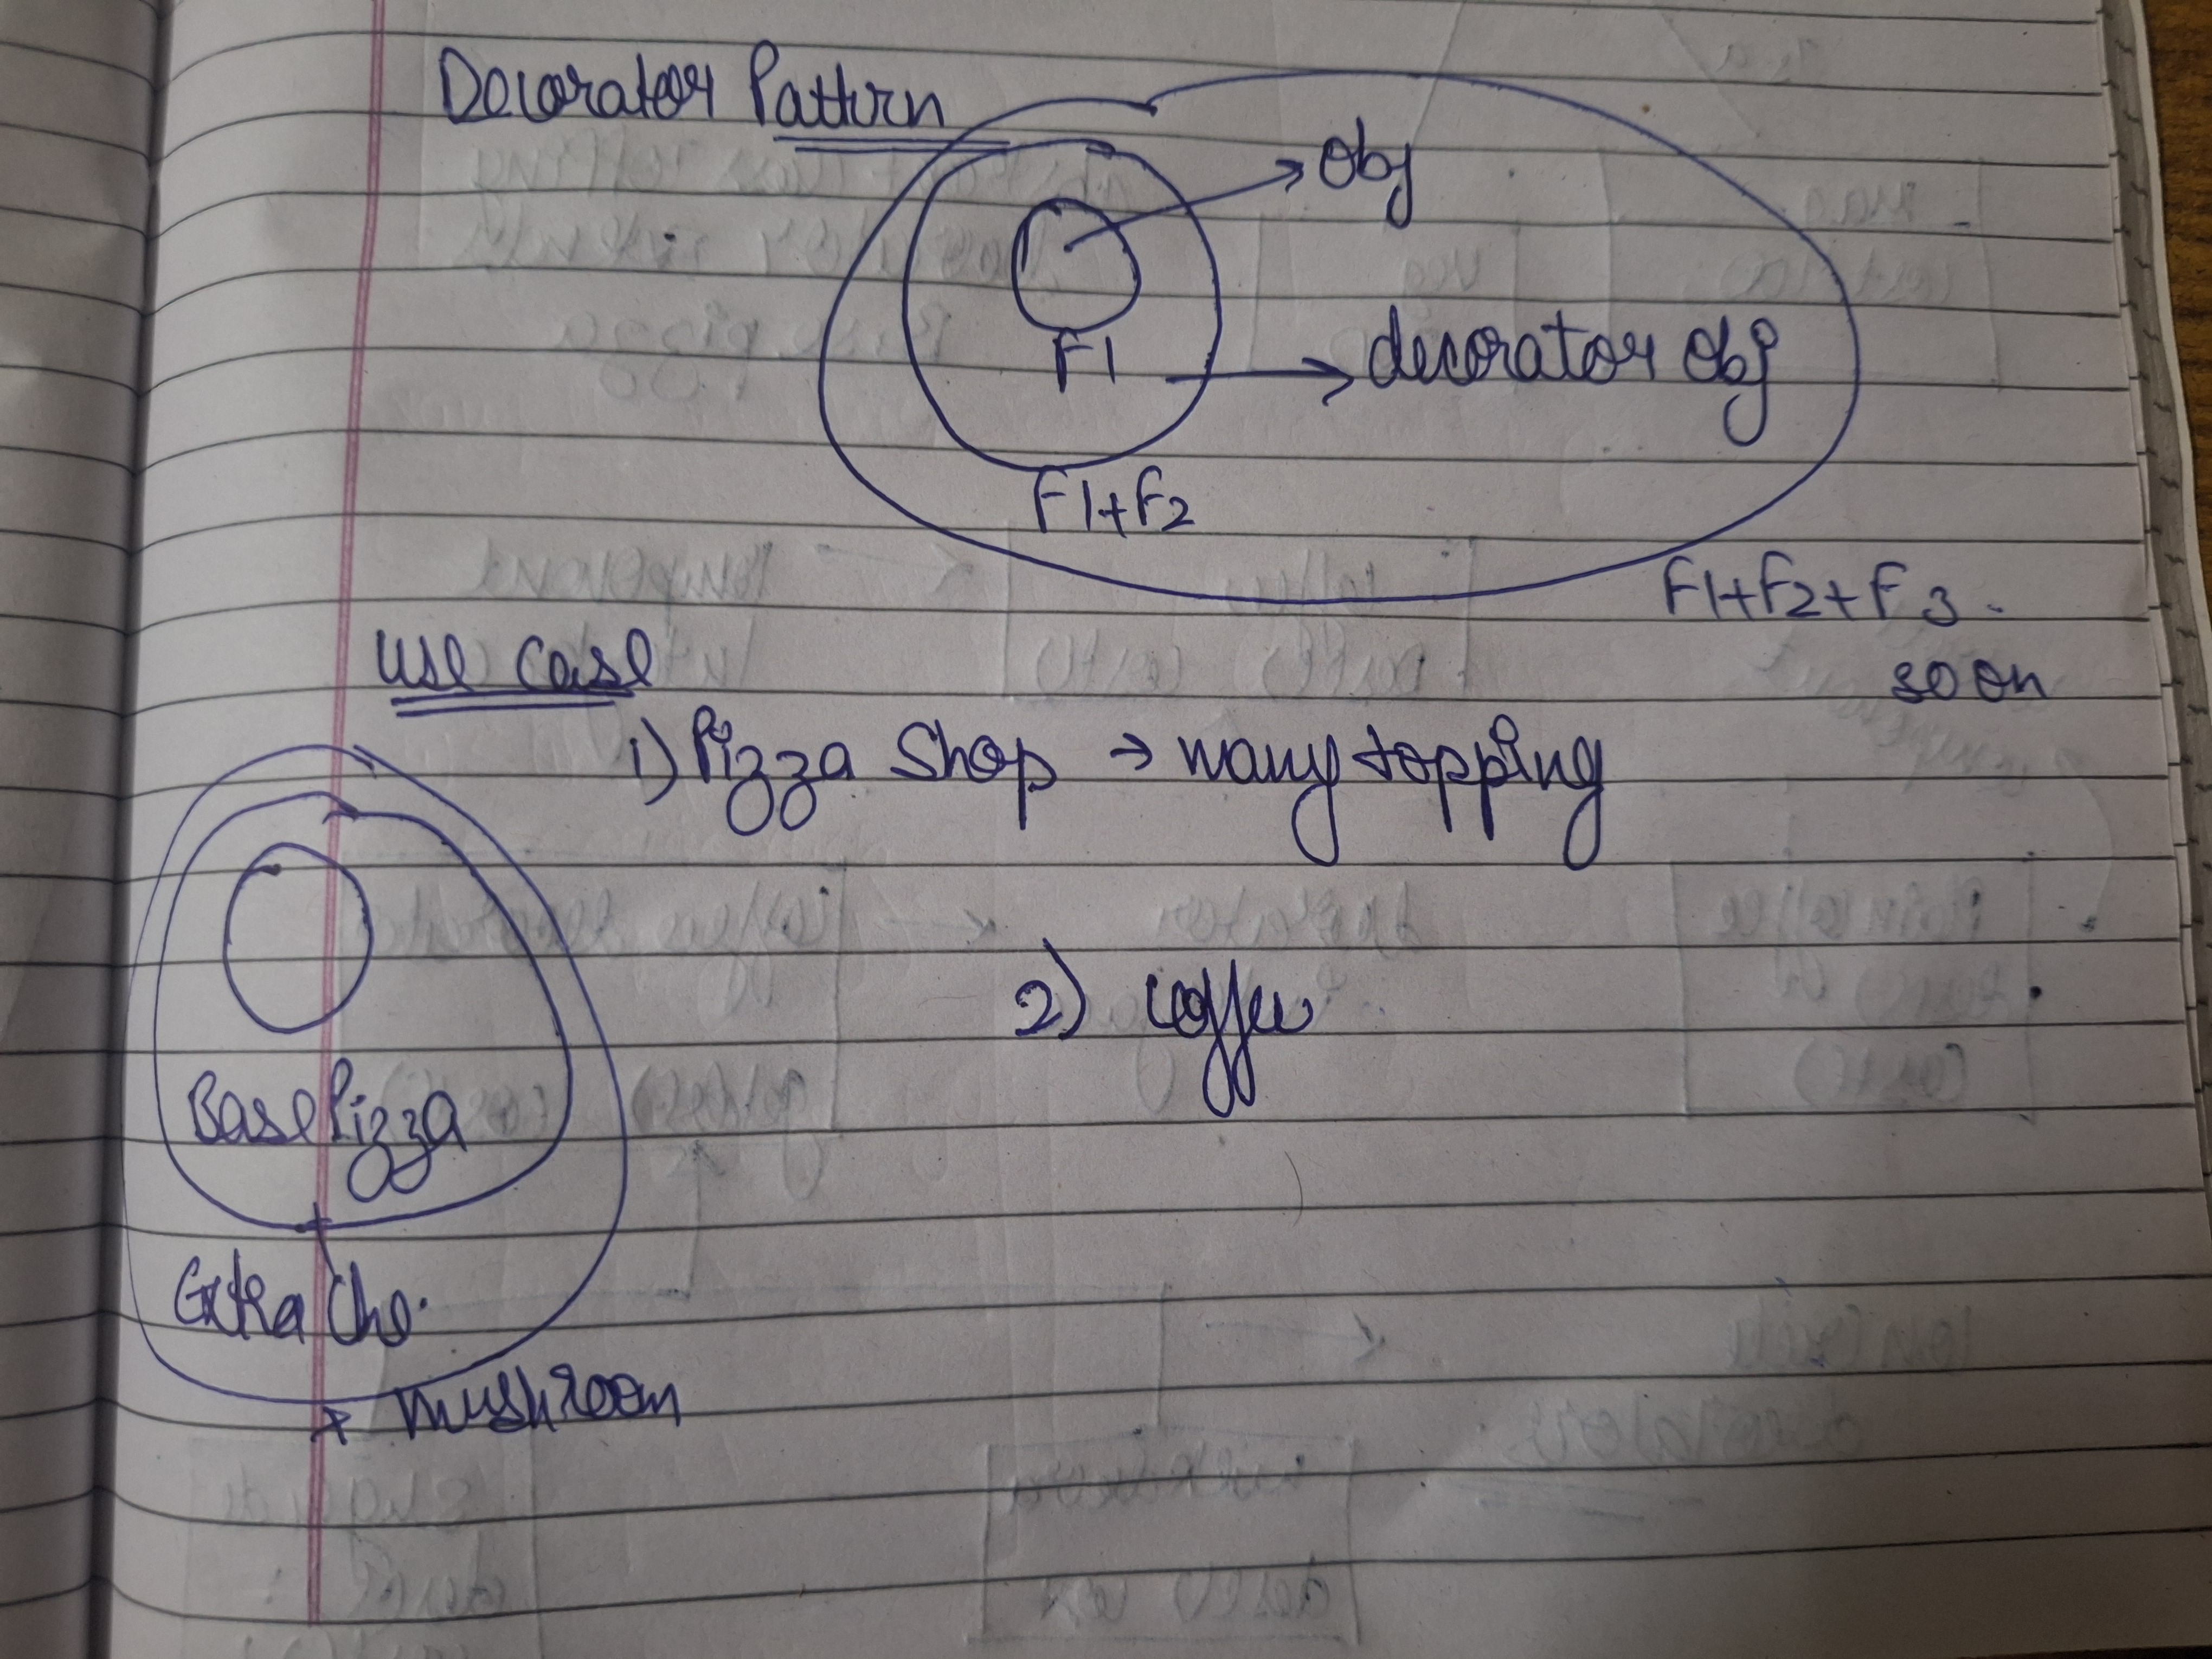 Decorator Pattern
obj
F1
decorator obj
F1+F2
F1+F2+F3.
so on
Use Case
1) Pizza Shop → many topping
Base Pizza
2) Coffee
+
Extra Che.
+ Mushroom